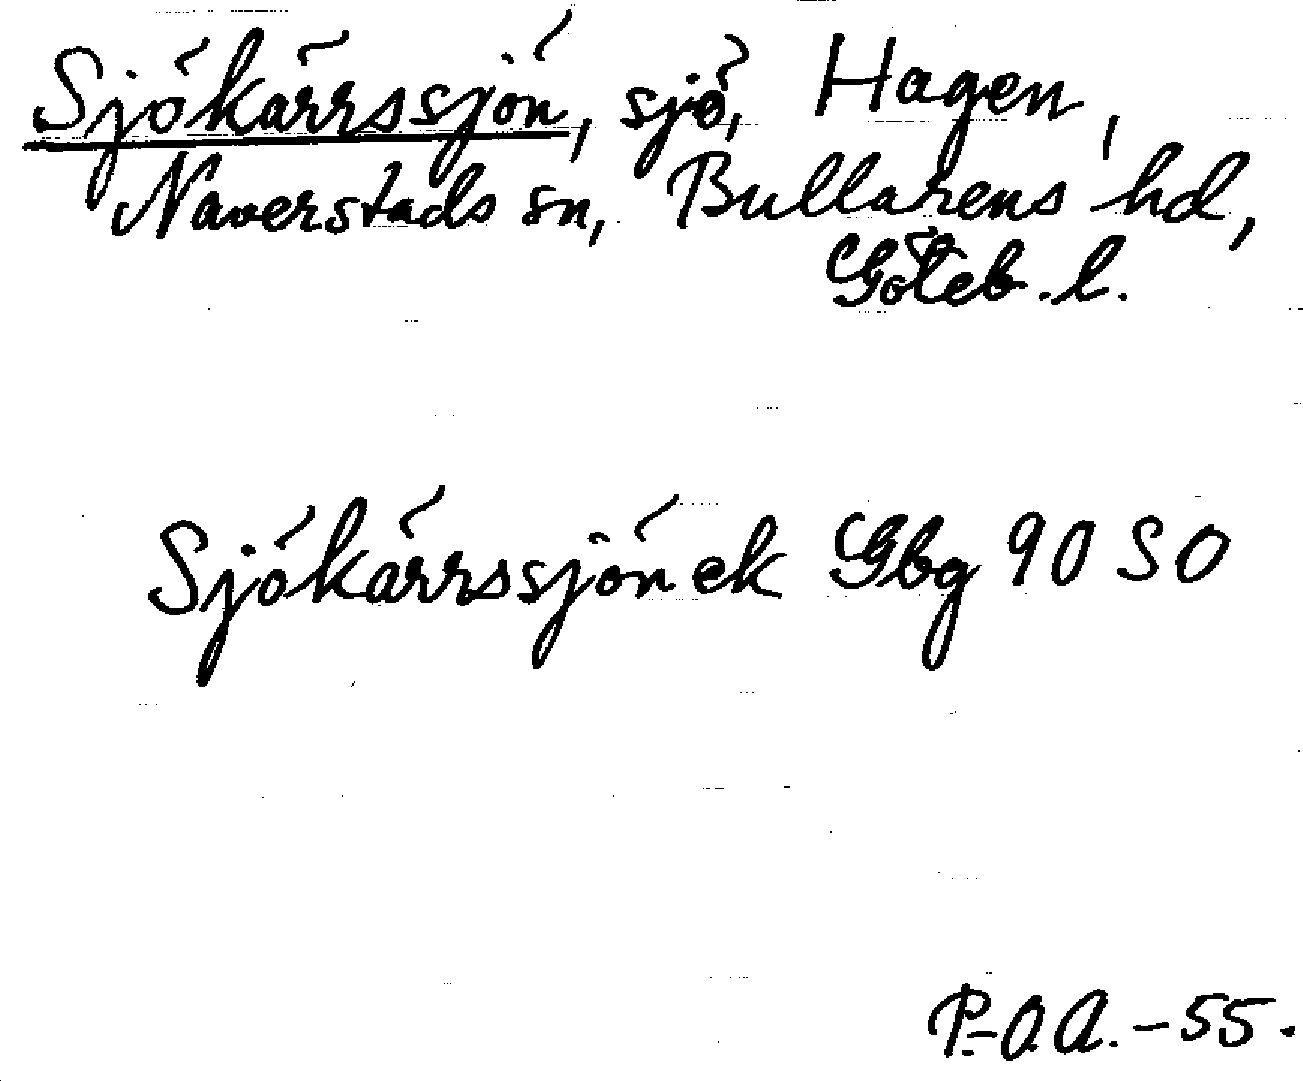 Sjökärrssjön, sjö, Hagen,
Naverstads sn, Bullarens hd,
Göteb. l.
Sjökärrssjön ek Gbg 90 SO
P.-O.A. - 55.